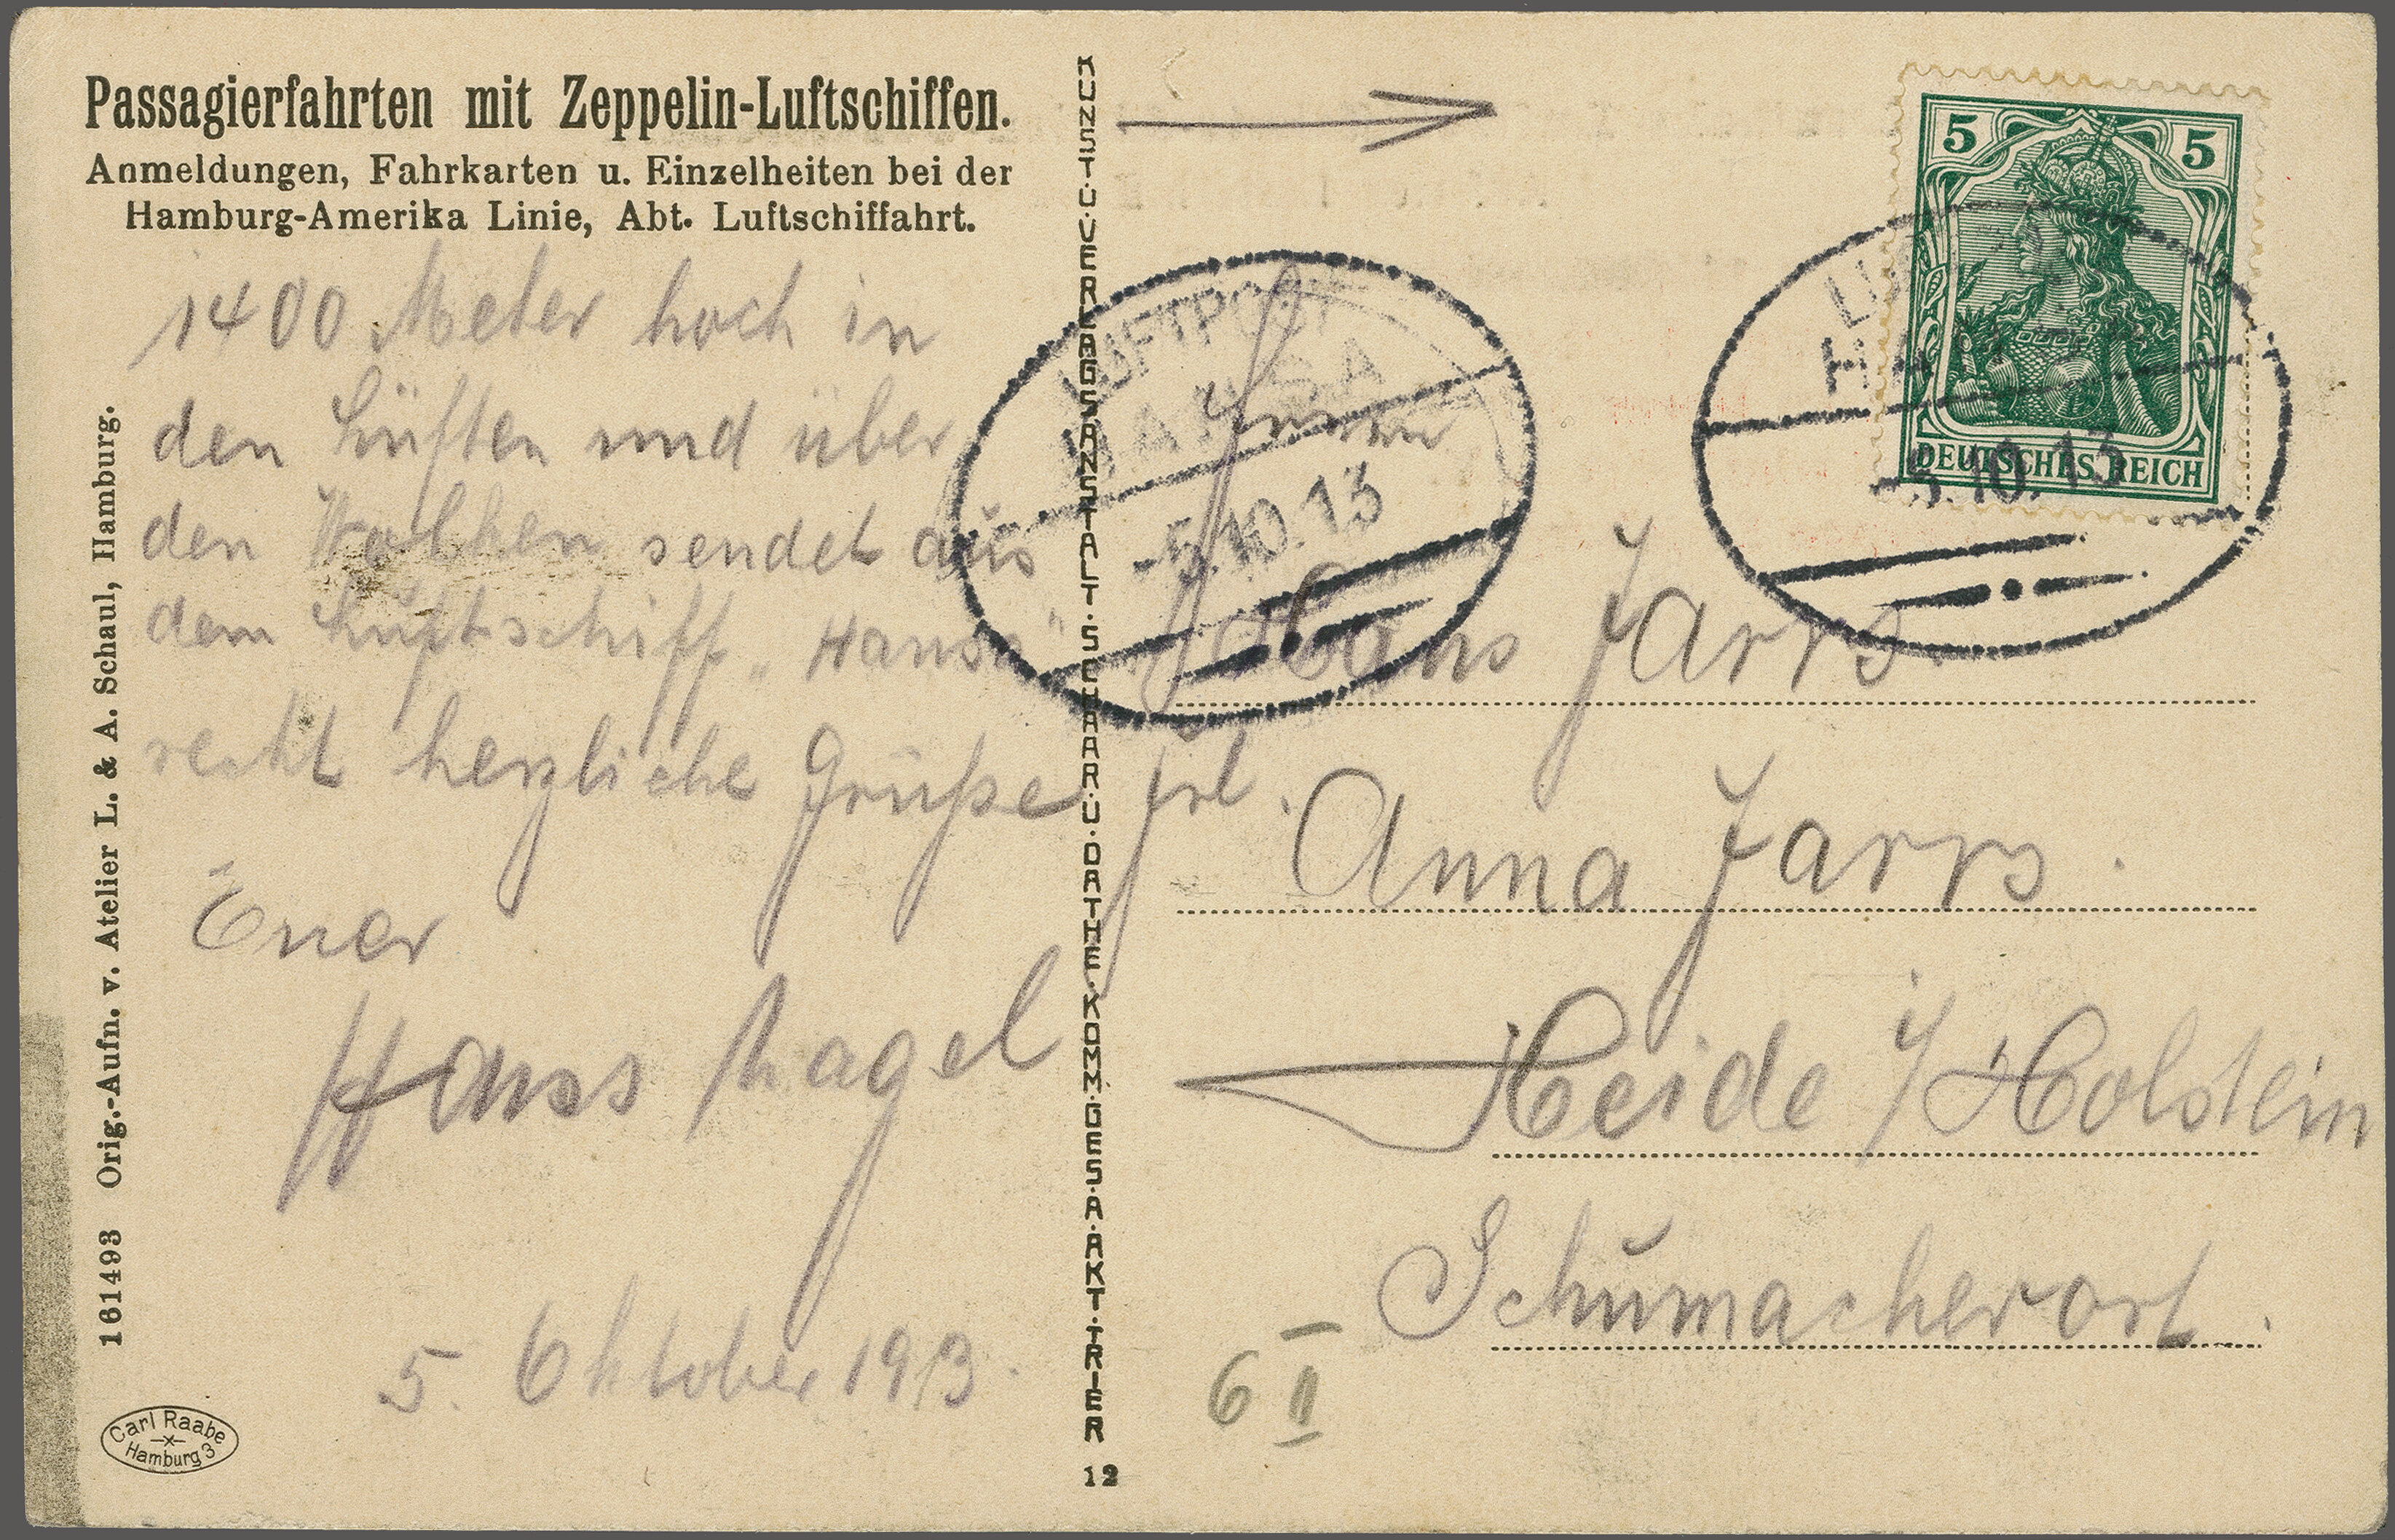 Passagierfahrten mit Zeppelin-Luftschiffen.
Anmeldungen, Fahrkarten u. Einzelheiten bei der
Hamburg-Amerika Linie, Abt. Luftschiffahrt.
1400 Meter hoch in
den Lüften und über
den Wolken sendet aus
dem Luftschiff „Hansa"
recht herzliche Grüße
Euer
Hans Nagel
5. Oktober 1913.
161493 Orig.-Aufn. v. Atelier L. & A. Schaul, Hamburg.
Carl Raabe
Hamburg 3
KUNST·U·VERLAGSANSTALT·SCHAAR·U·DATHE·KOMM·GES·A·AKT·TRIER
12
LUFTPOST
HANSA
-5.10.13
5 5
DEUTSCHES REICH
LU
HA
-5.10.13
Hans Jarrs.
Frl. Anna Jarrs.
Heide i/Holstein
Schumacherort.
6 II